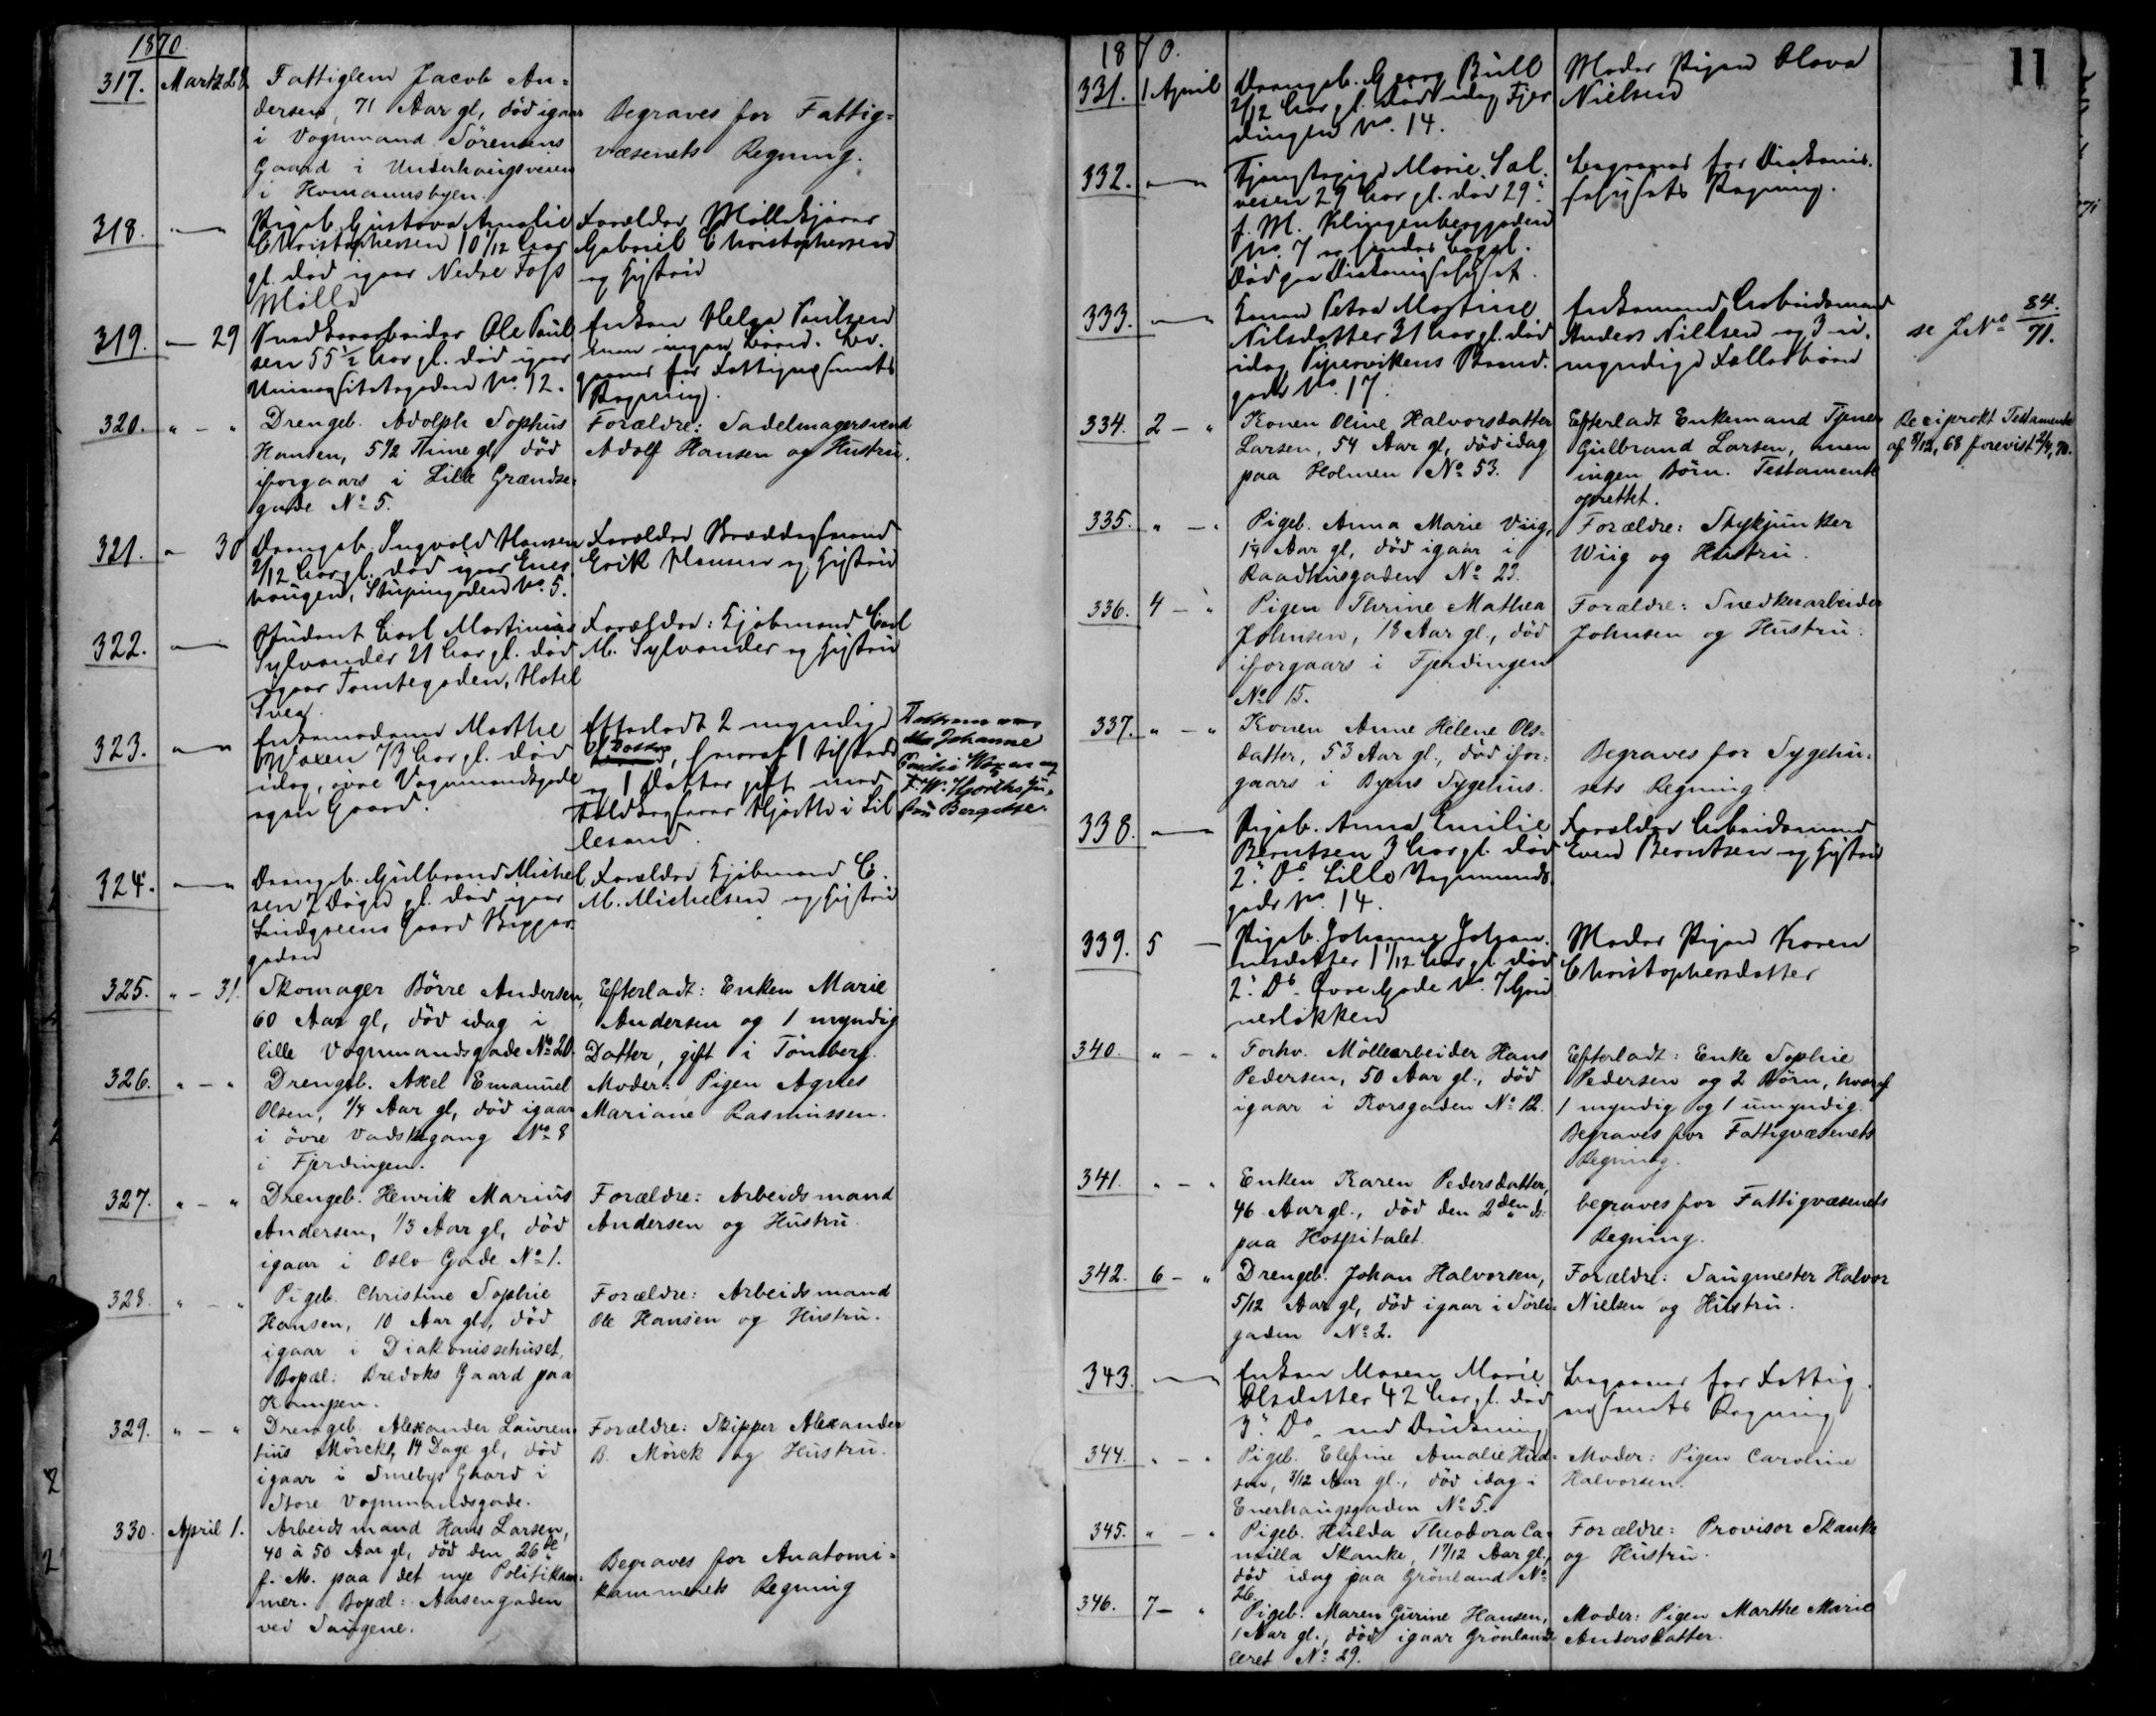 1870.
317. Martz 28. Fattiglem Jacob An-
dersen, 71 Aar gl, död igaar
i Vognmand Sörensens
Gaard i Underhaugsveien
i Homannsbyen.
Begraves for Fattig-
væsenets Regning.
318. — Pigeb. Gustava Amalie
Christophersen 10/12 Aar
gl. död igaar Nedre Foss
Mölle
Forældre Möllekjörer
Gabriel Christophersen
og Hustru
319. — 29 Ole Paul
sen 55 1/2 Aar gl. död igaar
Universitetsgaden No. 12.
Enken Helga Paulsen
men ingen Börn. Be-
graves for Fattigvæsenets
Regning.
320. " - " Drengeb. Adolph Sophus
Hansen, 5 1/2 Time gl, död
iforgaars i Lille Grændse-
gade No 5.
Forældre: Sadelmagersvend
Adolf Hansen og Hustru.
321. — 30 Drengeb. Ingvald Hansen
2/12 Aar gl. död igaar Ener
haugen, Stupingaden No. 5.
Forældre
Erik Hansen og Hustru
322. — Student Carl Martinius
Sylvander 21 Aar gl. död
igaar Tomtegaden, Hotel
Svea.
Forældre: Kjöbmand Carl
M. Sylvander og Hustru
323. — Enkemadame Marthe
Waxen 73 Aar gl. död
idag, övre Vognmandsgade
egen Gaard.
Efterladt 2 myndige
Döttre, hvoraf 1 tilstede
og 1 Datter gift med
Hjorth i Lil
lesand.
Johanne
324. — Drengeb. Gulbrand Michel
sen 7 Dage gl. död igaar
Lindgreens Gaard
gaden
Forældre Kjöbmand C.
M. Michelsen og Hustru
325. " - 31. Skomager Börre Andersen,
60 Aar gl, död idag i
lille Vognmandsgade No 20.
Efterladt: Enken Marie
Andersen og 1 myndig
Datter, gift i Tönsberg.
326. " - " Drengeb. Axel Emanuel
Olsen, 1/4 Aar gl, död igaar
i övre Vadskegang No 8
i Fjerdingen.
Moder: Pigen Agnes
Mariane Rasmussen.
327. " - " Drengeb. Henrik Marius
Andersen, 1/3 Aar gl, död
igaar i Oslo Gade No 1.
Forældre: Arbeidsmand
Andersen og Hustru.
328. " - " Pigeb. Christine Sophie
Hansen, 10 Aar gl, död
igaar i Diakonissehuset,
Bopæl: Bredoks Gaard paa
Kampen.
Forældre: Arbeidsmand
Ole Hansen og Hustru.
329. " - " Drengeb. Alexander Lauren
tius Mörck, 14 Dage gl, död
igaar i Smebys Gaard i
Store Vognmandsgade.
Forældre: Skipper Alexander
B. Mörck og Hustru.
330. April 1. Arbeidsmand Hans Larsen,
40 à 50 Aar gl, död den 26de
f. M. paa det nye Politikam-
mer. Bopæl: Aasengaden
ved Saugene.
Begraves for Anatomi-
kammerets Regning
11
1870.
331. 1 April Drengeb. Georg Bull
2/12 Aar gl. död idag Fjer
dingen No. 14.
Moder Pigen Olava
Nielsen
332. — Tjenestepige Marie Sal
vesen 29 Aar gl. död 29.
f. M. Klingenberggaden
No. 7
Död paa Diakonissehuset.
Begraves for Diakonis-
sehusets Regning.
333. — Konen Petra Martine
Nilsdatter 31 Aar gl. död
idag Pipervikens Strand-
gade No. 17.
Enkemand Arbeidsmand
Anders Nillsen og 3 u-
myndige Fællesbörn
se J No 84./71.
334. 2 - " Konen Oline Halvorsdatter
Larsen, 54 Aar gl, död idag
paa Holmen No 53.
Efterladt Enkemand Tjener
Gulbrand Larsen, men
ingen Börn. Testamente
oprettet.
Reciprokt Testamente
af 8/12, 68 forevist 2/4, 70.
335. " - " Pigeb. Anna Marie Viig,
1/4 Aar gl, död igaar i
Raadhusgaden No 23.
Forældre: Stykjunker
Wiig og Hustru.
336. 4 - " Pigen Thrine Mathea
Johnsen, 18 Aar gl., död
iforgaars i Fjerdingen
No 15.
Forældre: Snedkerarbeider
Johnsen og Hustru.
337. " - " Konen Anne Helene Ols-
datter, 53 Aar gl., död ifor-
gaars i Byens Sygehus.
Begraves for Sygehu-
sets Regning.
338. — Pigeb. Anna Emilie
Berntsen 3 Aar gl. död
2. Ds. Lille Vognmands-
gade No. 14.
Forældre Arbeidsmand
Even Berntsen og Hustru
339. 5 — Pigeb. Johanne Johan-
nesdatter 1 1/12 Aar gl. död
2. Ds. Övre Gade No. 7 Grü
nerlökken
Moder Pigen Karen
Christophersdatter
340. " - " Forhv. Möllearbeider Hans
Pedersen, 50 Aar gl., död
igaar i Korsgaden No 12.
Efterladt: Enke Sophie
Pedersen og 2 Börn, hvoraf
1 myndig og 1 umyndig.
Begraves for Fattigvæsenets
Regning.
341. " - " Enken Karen Pedersdatter,
46 Aar gl., död den 2den ds.
paa Hospitalet.
begraves for Fattigvæsenets
Regning.
342. 6 - " Drengeb. Johan Halvorsen,
5/12 Aar gl, död igaar i Sörli-
gaden No 2.
Forældre: Saugmester Halvor
Nielsen og Hustru.
343. — Enken Maren Marie
Olsdatter 42 Aar gl. död
3. Ds. ved Drukning
Begraves for Fattig-
væsenets Regning
344. " - " Pigeb. Elefine Amalie Hud-
son, 3/12 Aar gl., död idag i
Enerhaugsgaden No 5.
Moder: Pigen Caroline
Halvorsen.
345. " - " Pigeb. Hulda Theodora Ca-
milla Skanke, 1 1/12 Aar gl.,
död idag paa Grönland No
26.
Forældre: Provisor Skanke
og Hustru.
346. 7 - " Pigeb. Maren Gurine Hansen,
1 Aar gl., död igaar Grönlands-
leret No 29.
Moder: Pigen Marthe Marie
Andersdatter.